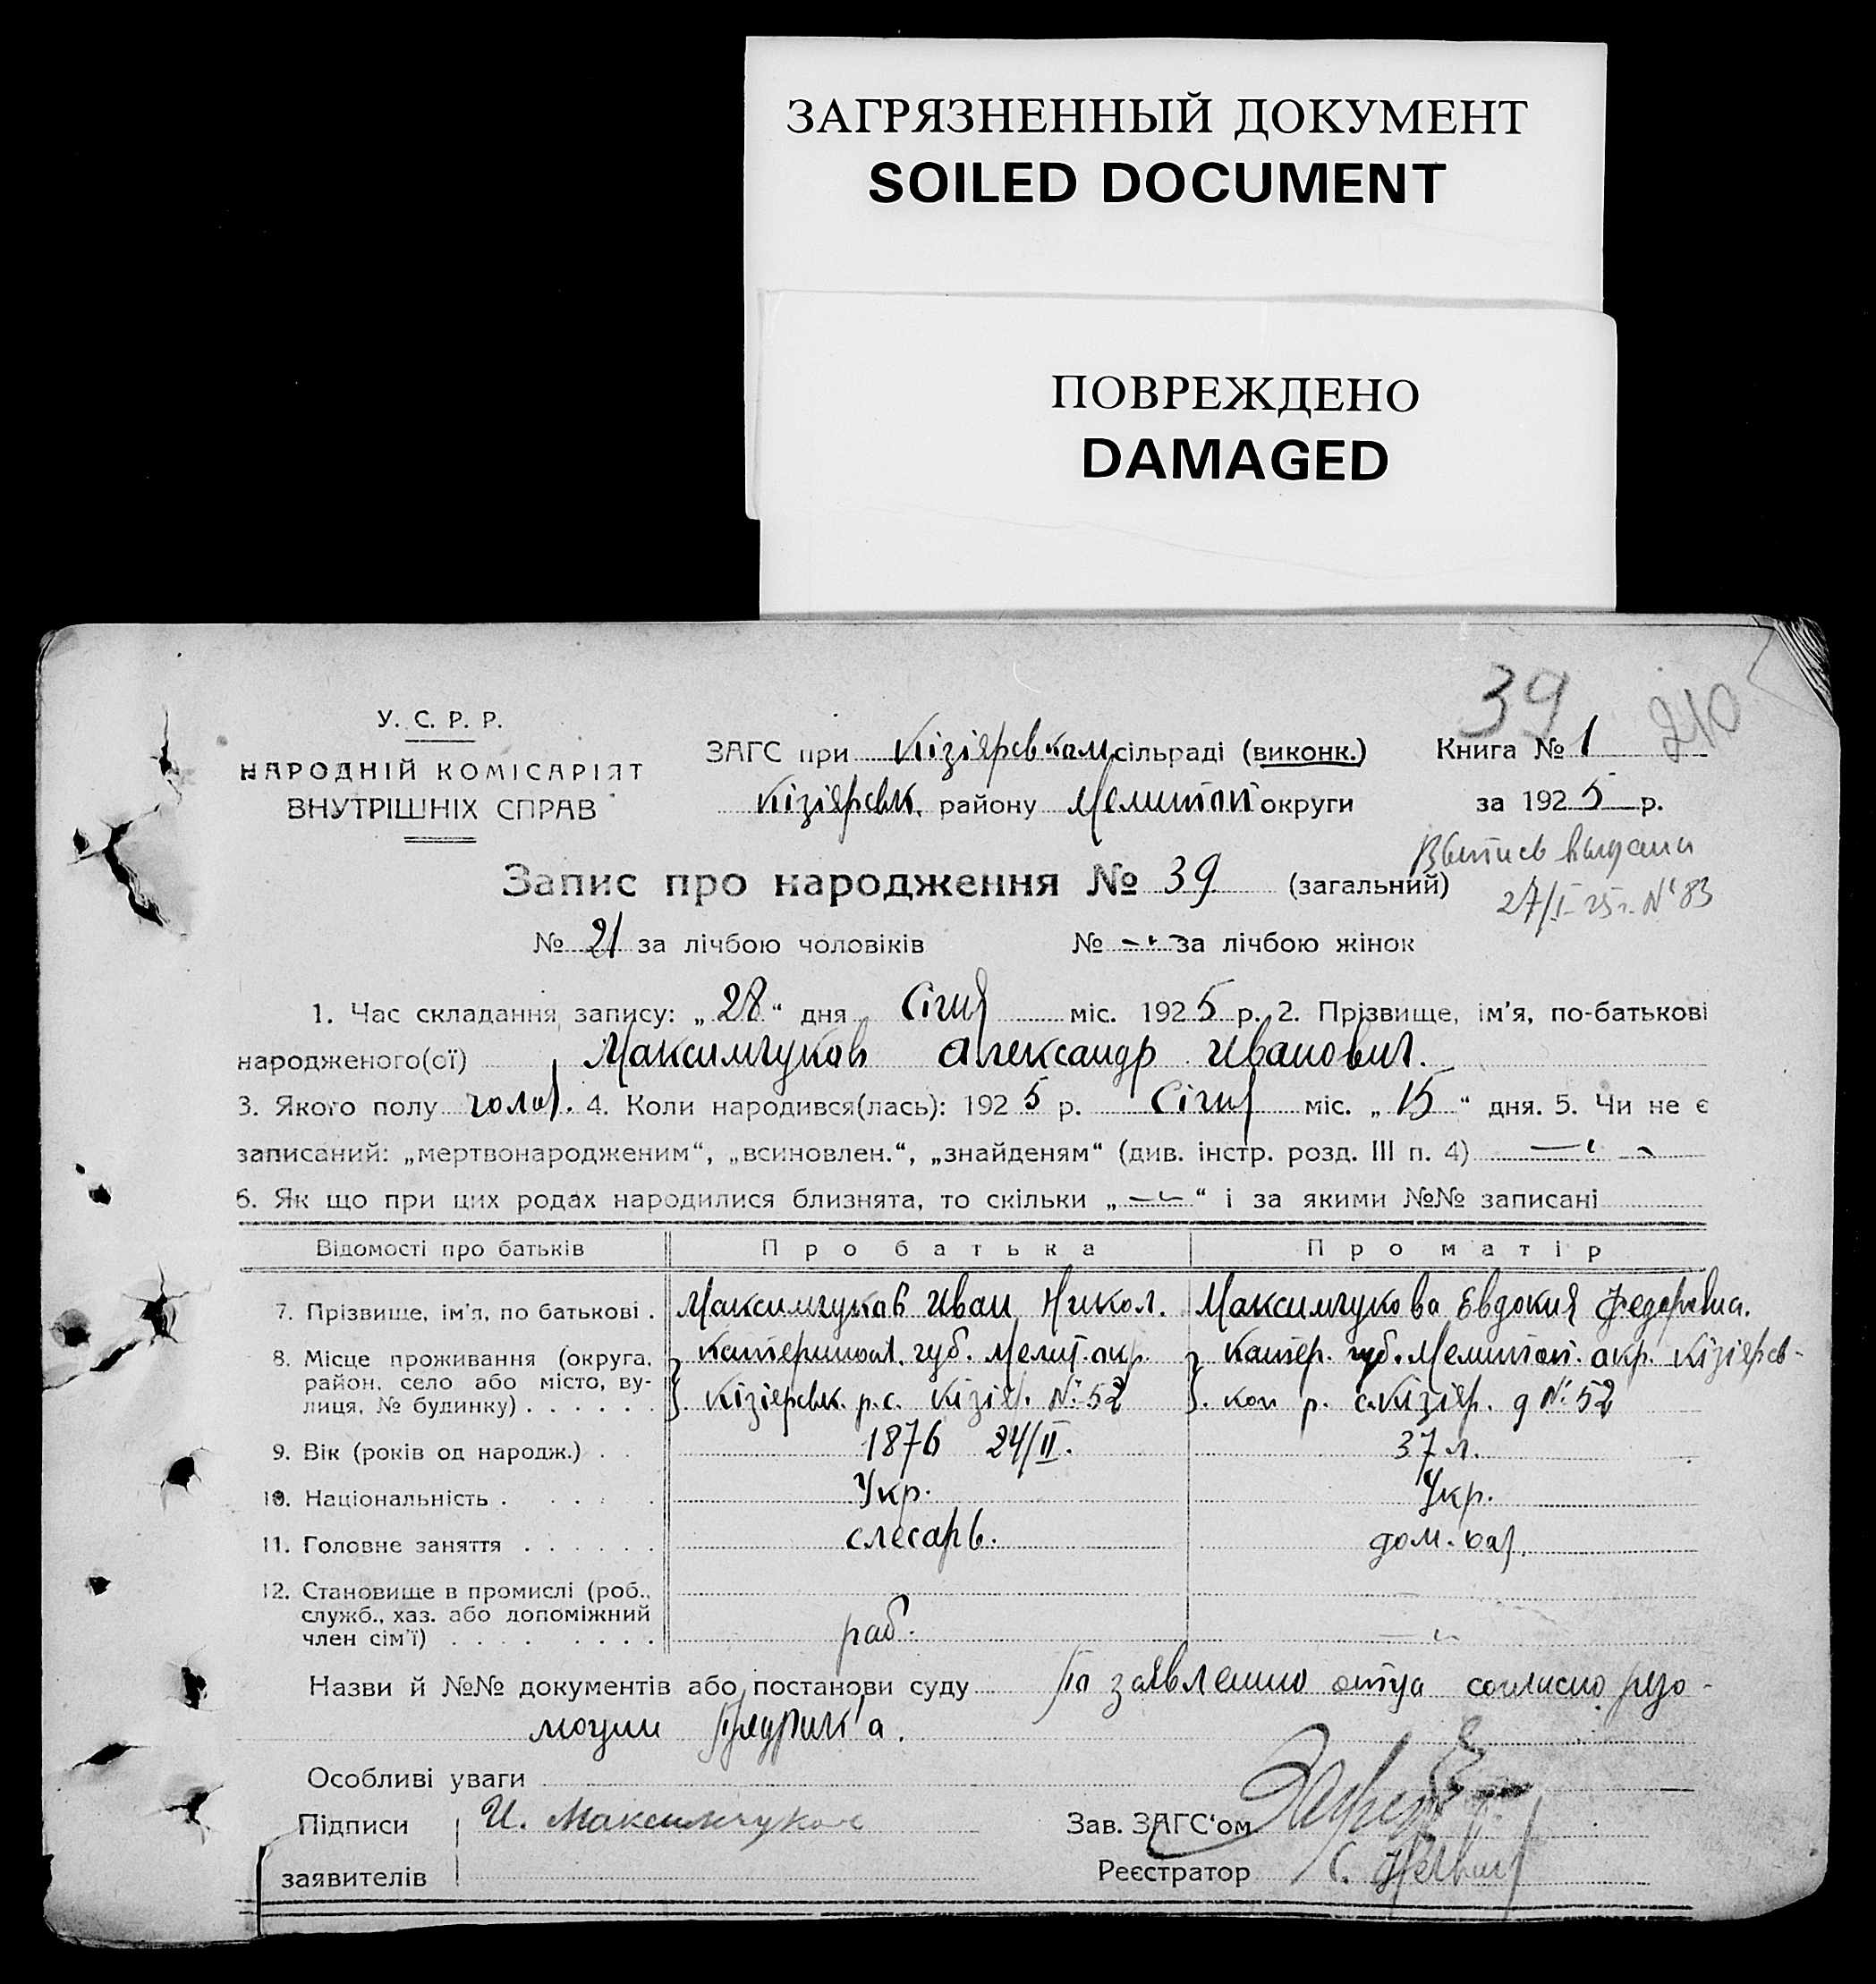 ЗАГРЯЗНЕННЫЙ ДОКУМЕНТ
SOILED DOCUMENT
ПОВРЕЖДЕНО
DAMAGED
39
210
У. С. Р. Р.
НАРОДНІЙ КОМІСАРІЯТ
ВНУТРІШНІХ СПРАВ
ЗАГС при Кізіярсвком сільраді (виконк.)
Книга № 1
Кізіярськ. району Мелитоп округи
за 1925 р.
Выпись выдана
27/I-25 г. № 83
Запис про народження № 39 (загальний)
№ 21 за лічбою чоловіків № за лічбою жінок
1. Час складання запису: „28“ дня Січня міс. 1925 р. 2. Прізвище, ім'я, по-батькові
народженого(ої) Максимчуков Александр Иванович.
3. Якого полу чолов. 4. Коли народився(лась): 1925 р. Січня міс. „15“ дня. 5. Чи не є
записаний: „мертвонародженим“, „всиновлен.“, „знайденям“ (див. інстр. розд. III п. 4)
6. Як що при цих родах народилися близнята, то скільки „—“ і за якими №№ записані
Відомості про батьків Про батька Про матір
7. Прізвище, ім'я, по батькові . Максимчуков Иван Никол. Максимчукова Евдокия Федоровна.
8. Місце проживання (округа, район, село або місто, вулиця, № будинку) . . . . . .
Катеринос. губ. Мелит. окр.
Кізіярськ. р. с. Кізіяр. № 52
Катер. губ. Мелитоп. окр. Кізіярсв-
ком р. с. Кізіяр. д № 52
9. Вік (років од народж.) . . 1876 24/II. 37 л.
10. Національність . . . . . Укр. Укр.
11. Головне заняття . . . . . . слесарь. дом. хаз.
12. Становище в промислі (роб.,
служб., хаз. або допоміжний
член сім'ї) . . . . . . . . раб.
Назви й №№ документів або постанови суду По заявлению отца согласно резо-
люции
Особливі уваги
Підписи
заявителів
И. Максимчуков
Зав. ЗАГС'ом
Реєстратор